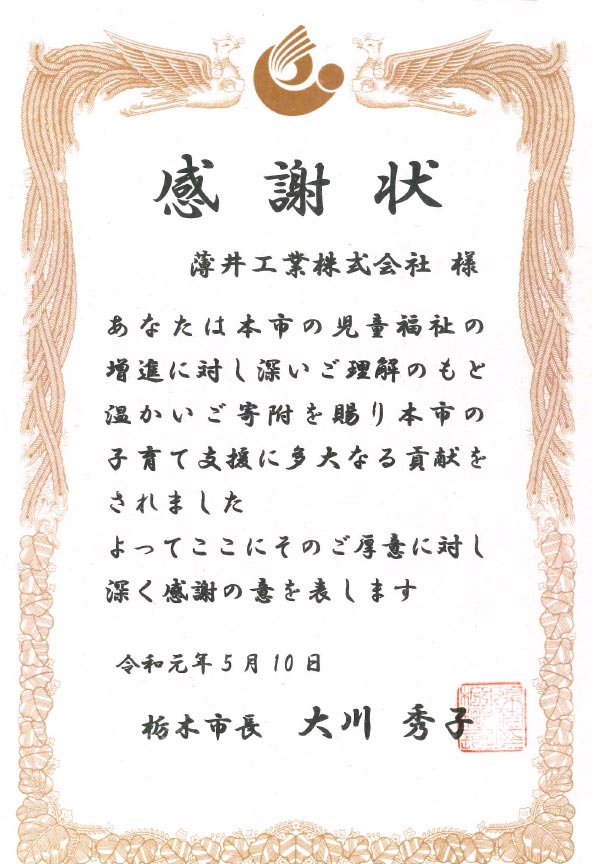 感謝状
薄井工業株式会社 様
あなたは本市の児童福祉の
増進に対し深いご理解のもと
温かいご寄附を賜り本市の
子育て支援に多大なる貢献を
されました
よってここにそのご厚意に対し
深く感謝の意を表します
令和元年5月10日
栃木市長 大川 秀子